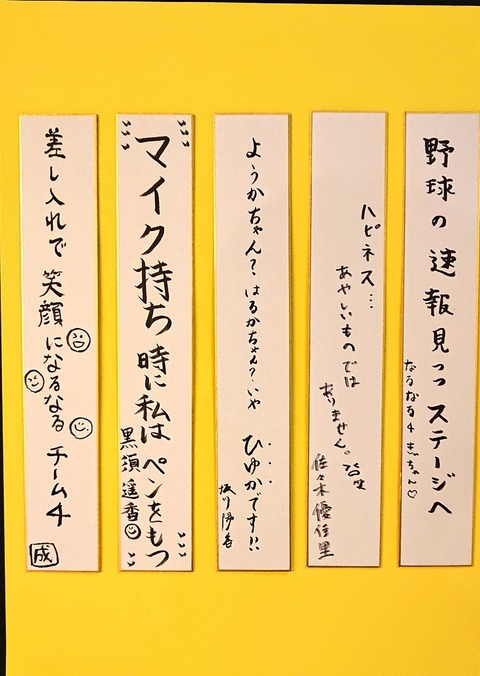 野球の速報見つつステージへ
なるなる4 ぎちゃん♡
ハピネス…
あやしいものでは
ありません。
佐々木優佳里
ようかちゃん?はるかちゃん?いや
ひゆかです!!
マイク持ち 時に私は ペンをもつ
黒須遥香
差し入れで 笑顔になるなる チーム4
成